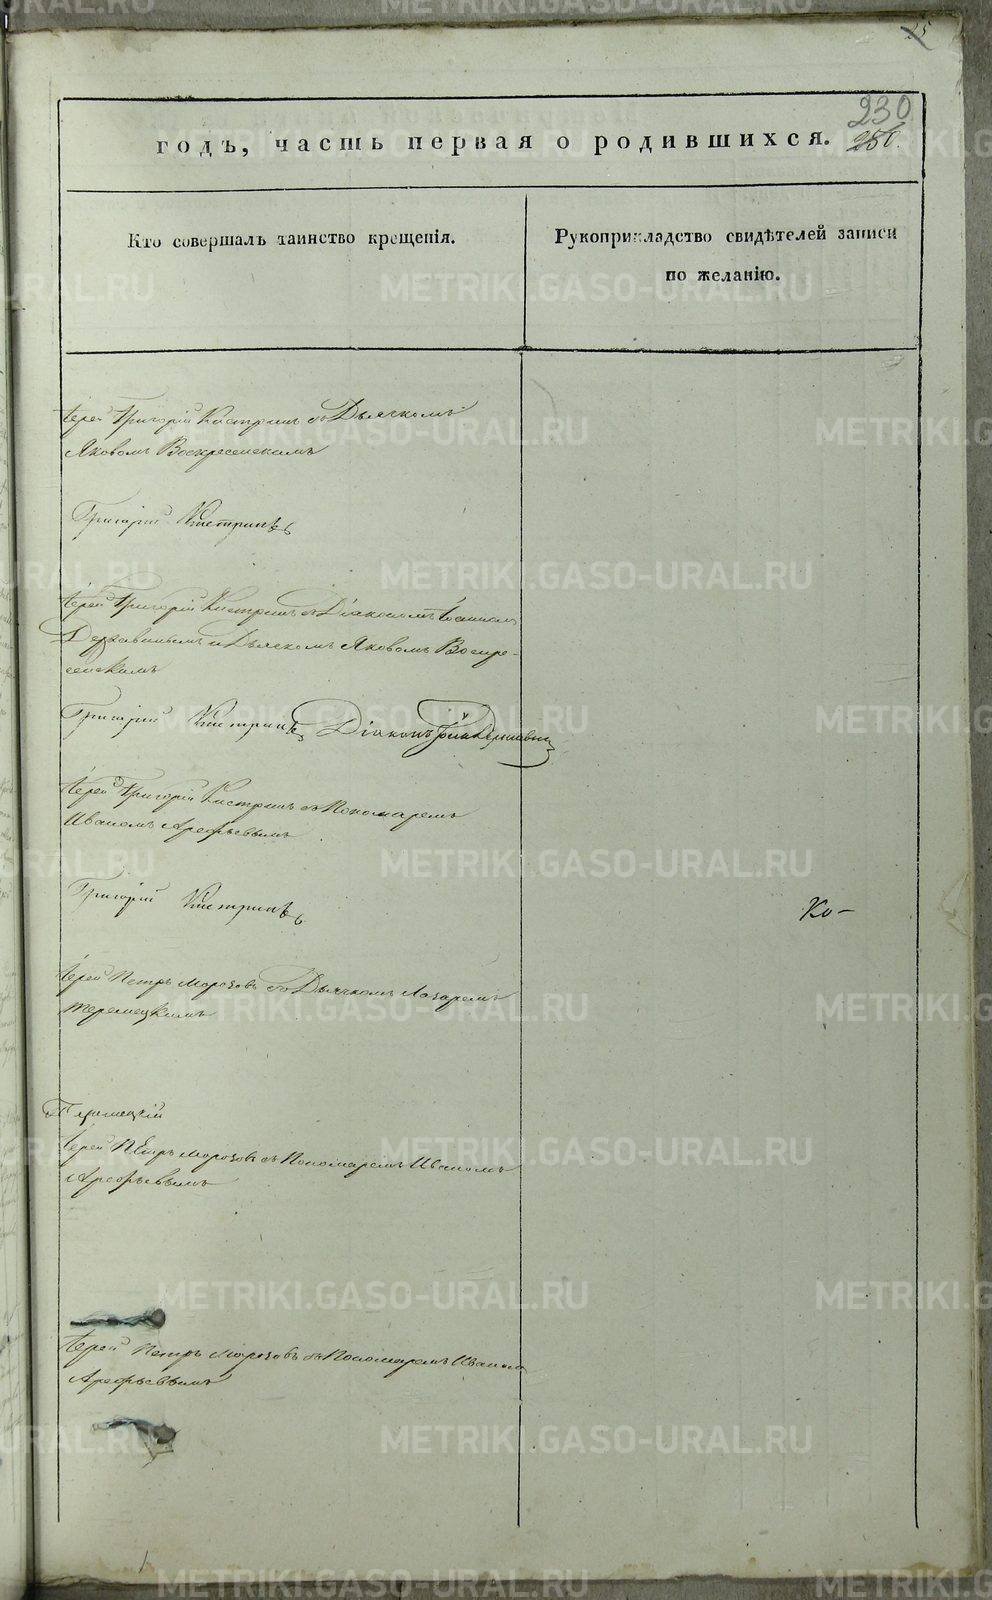 25
230
250.
годъ, часть первая о родившихся.
Кто совершалъ таинство крещенія.
Рукоприкладство свидѣтелей записи
по желанію.
Іерей Григорій Кистринъ съ Дьячкомъ
Яковомъ Воскресенскимъ
Григорій Кистринъ
Іерей Григорій Кистринъ съ Діакономъ Іоанномъ
Державинымъ и Дьячкомъ Яковомъ Воскре-
сенскимъ
Григорій Кистринъ Діаконъ Державинъ
Іерей Григорій Кистринъ съ Пономаремъ
Иваномъ Арефьевымъ
Григорій Кистринъ
Ко-
Іерей Петръ Морозовъ съ Дьячкомъ Лазаремъ
Теремецкимъ
Теремецкій
Іерей Петръ Морозовъ съ Пономаремъ Иваномъ
Арефьевымъ
Іерей Петръ Морозовъ съ Пономаремъ Иваномъ
Арефьевымъ
METRIKI.GASO-URAL.RU